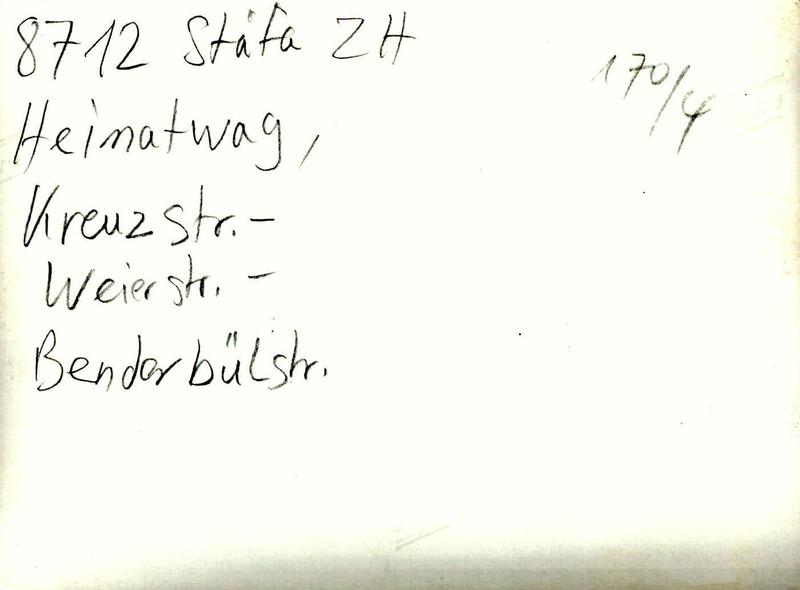 8712 Stäfa ZH
170/4
Heimatwag,
Kreuzstr.-
Weierstr.-
Benderbülstr.